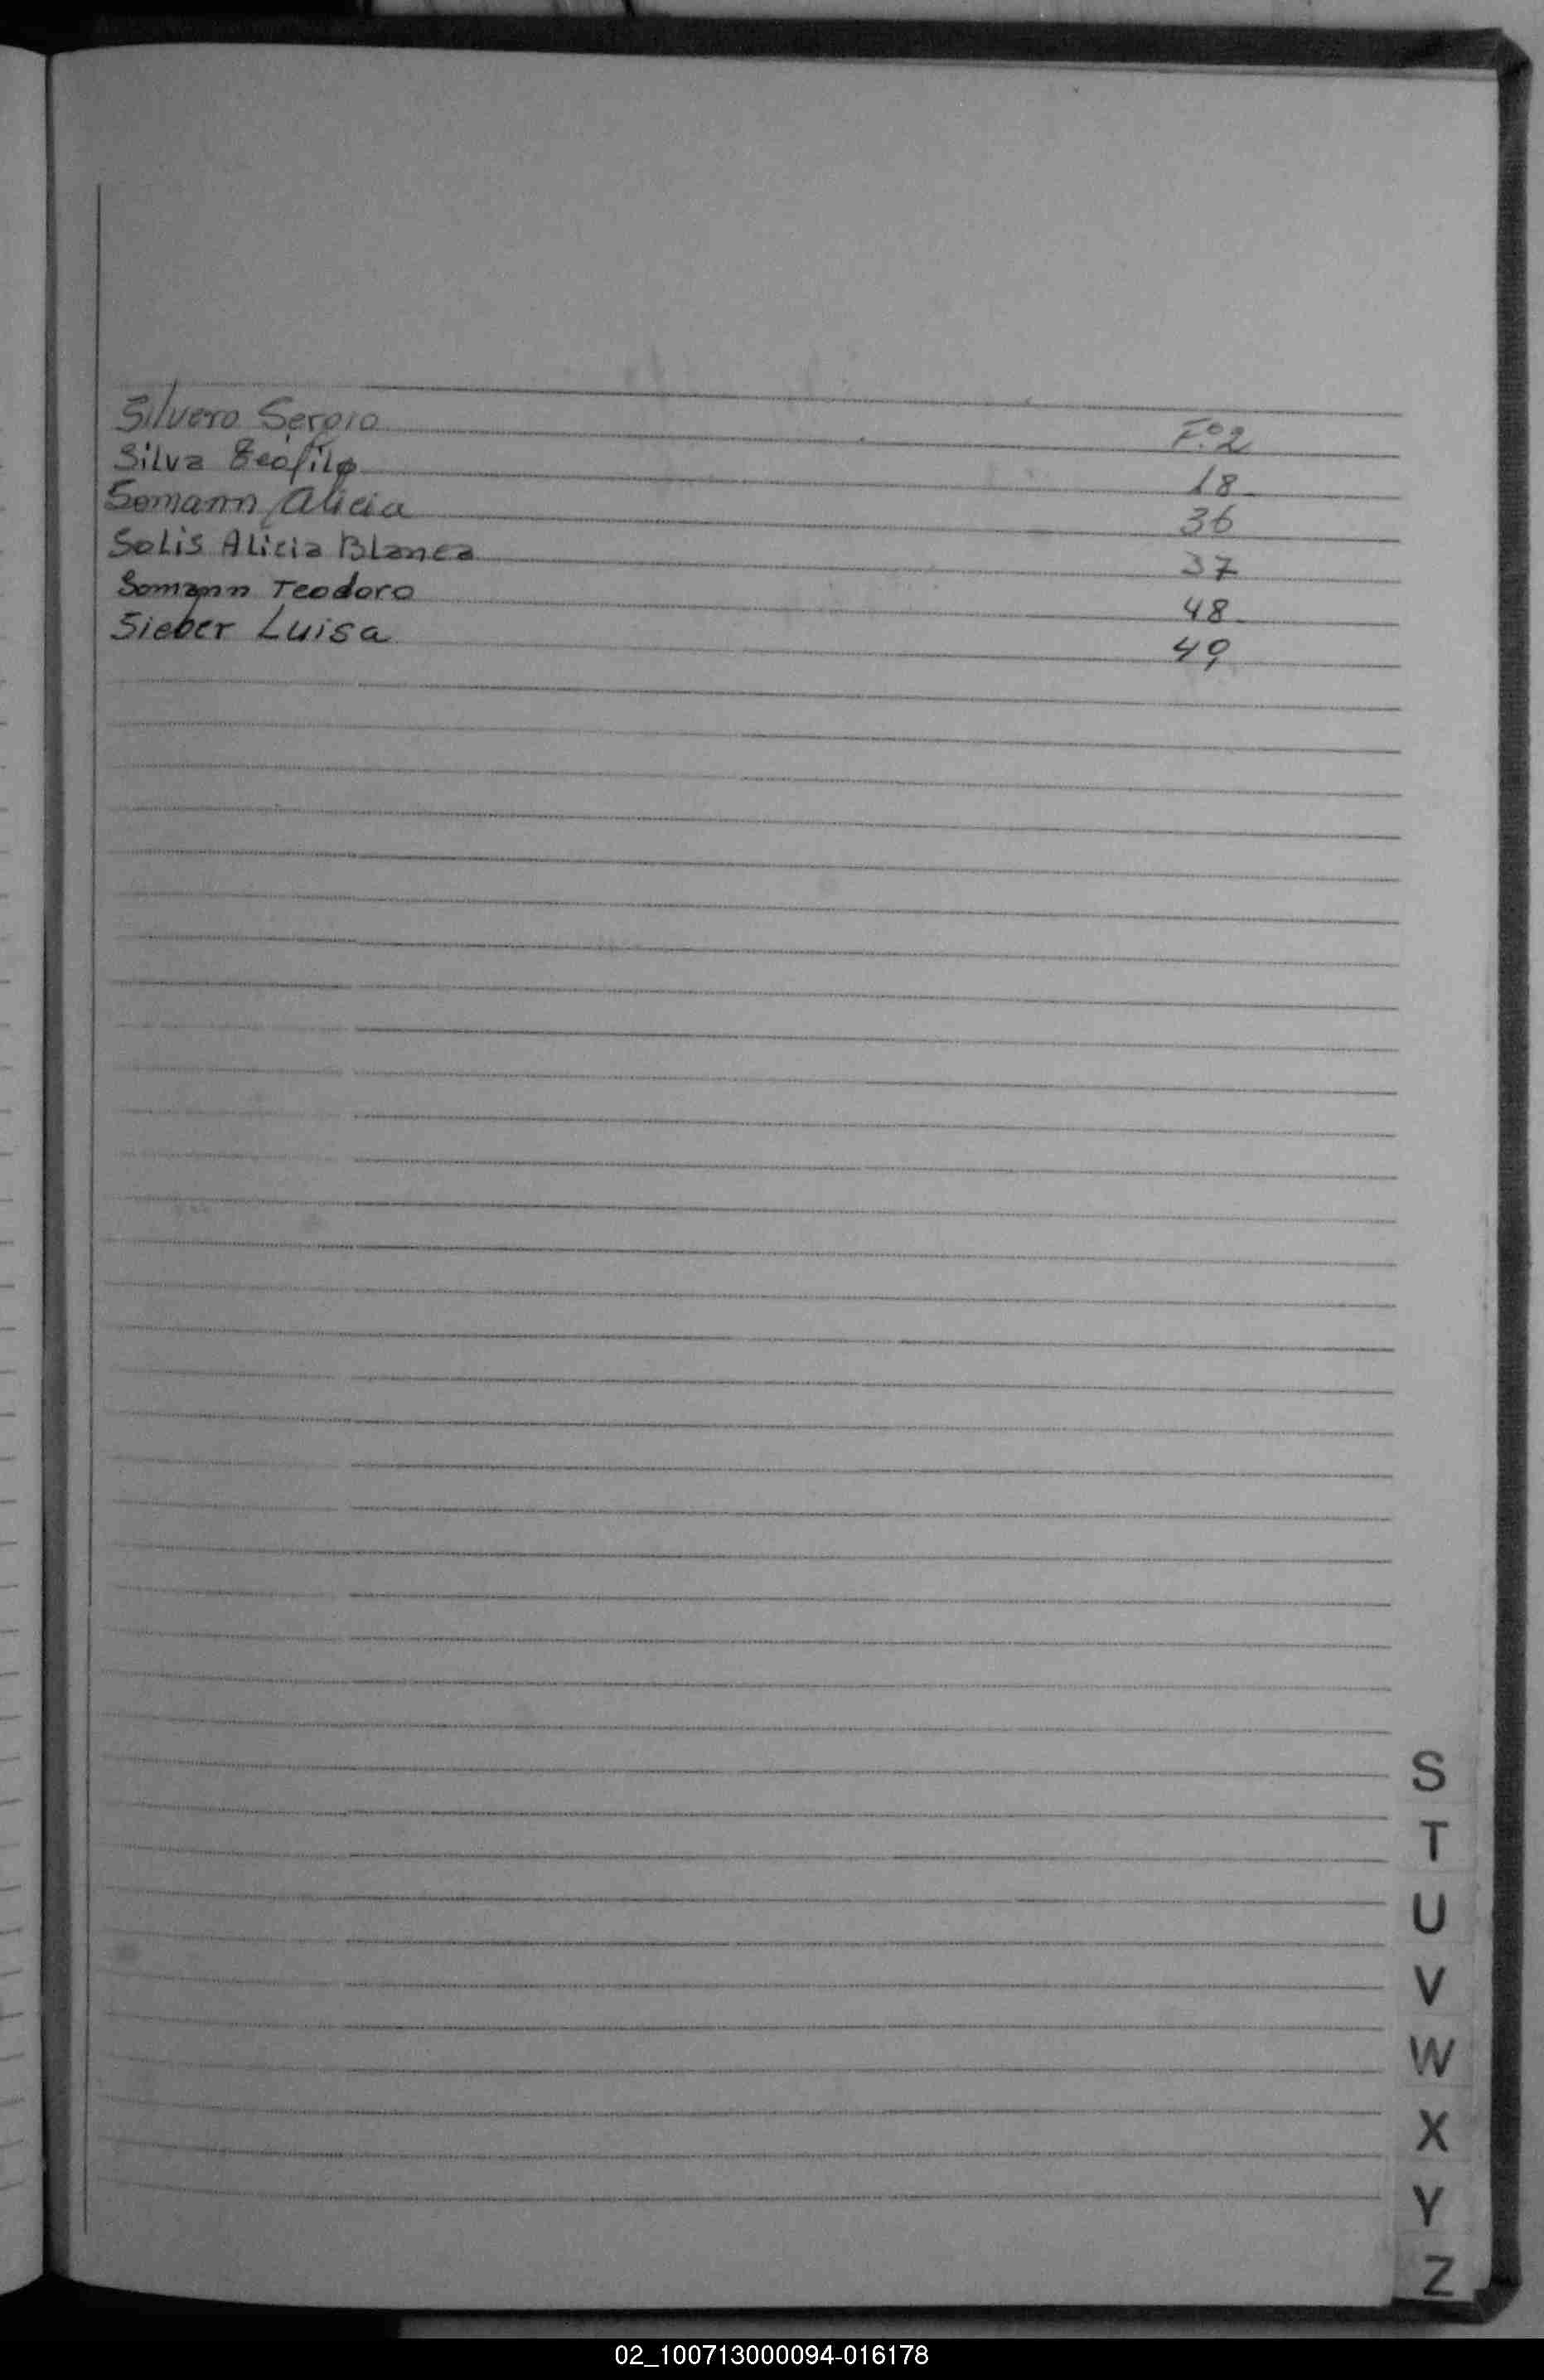 Silvero Sergio F.º 2
Silva Teofilo 18
Somann Alicia 36
Solis Alicia Blanca 37
Somann Teodoro 48
Sieber Luisa 49
S
T
U
V
W
X
Y
Z
02_100713000094-016178